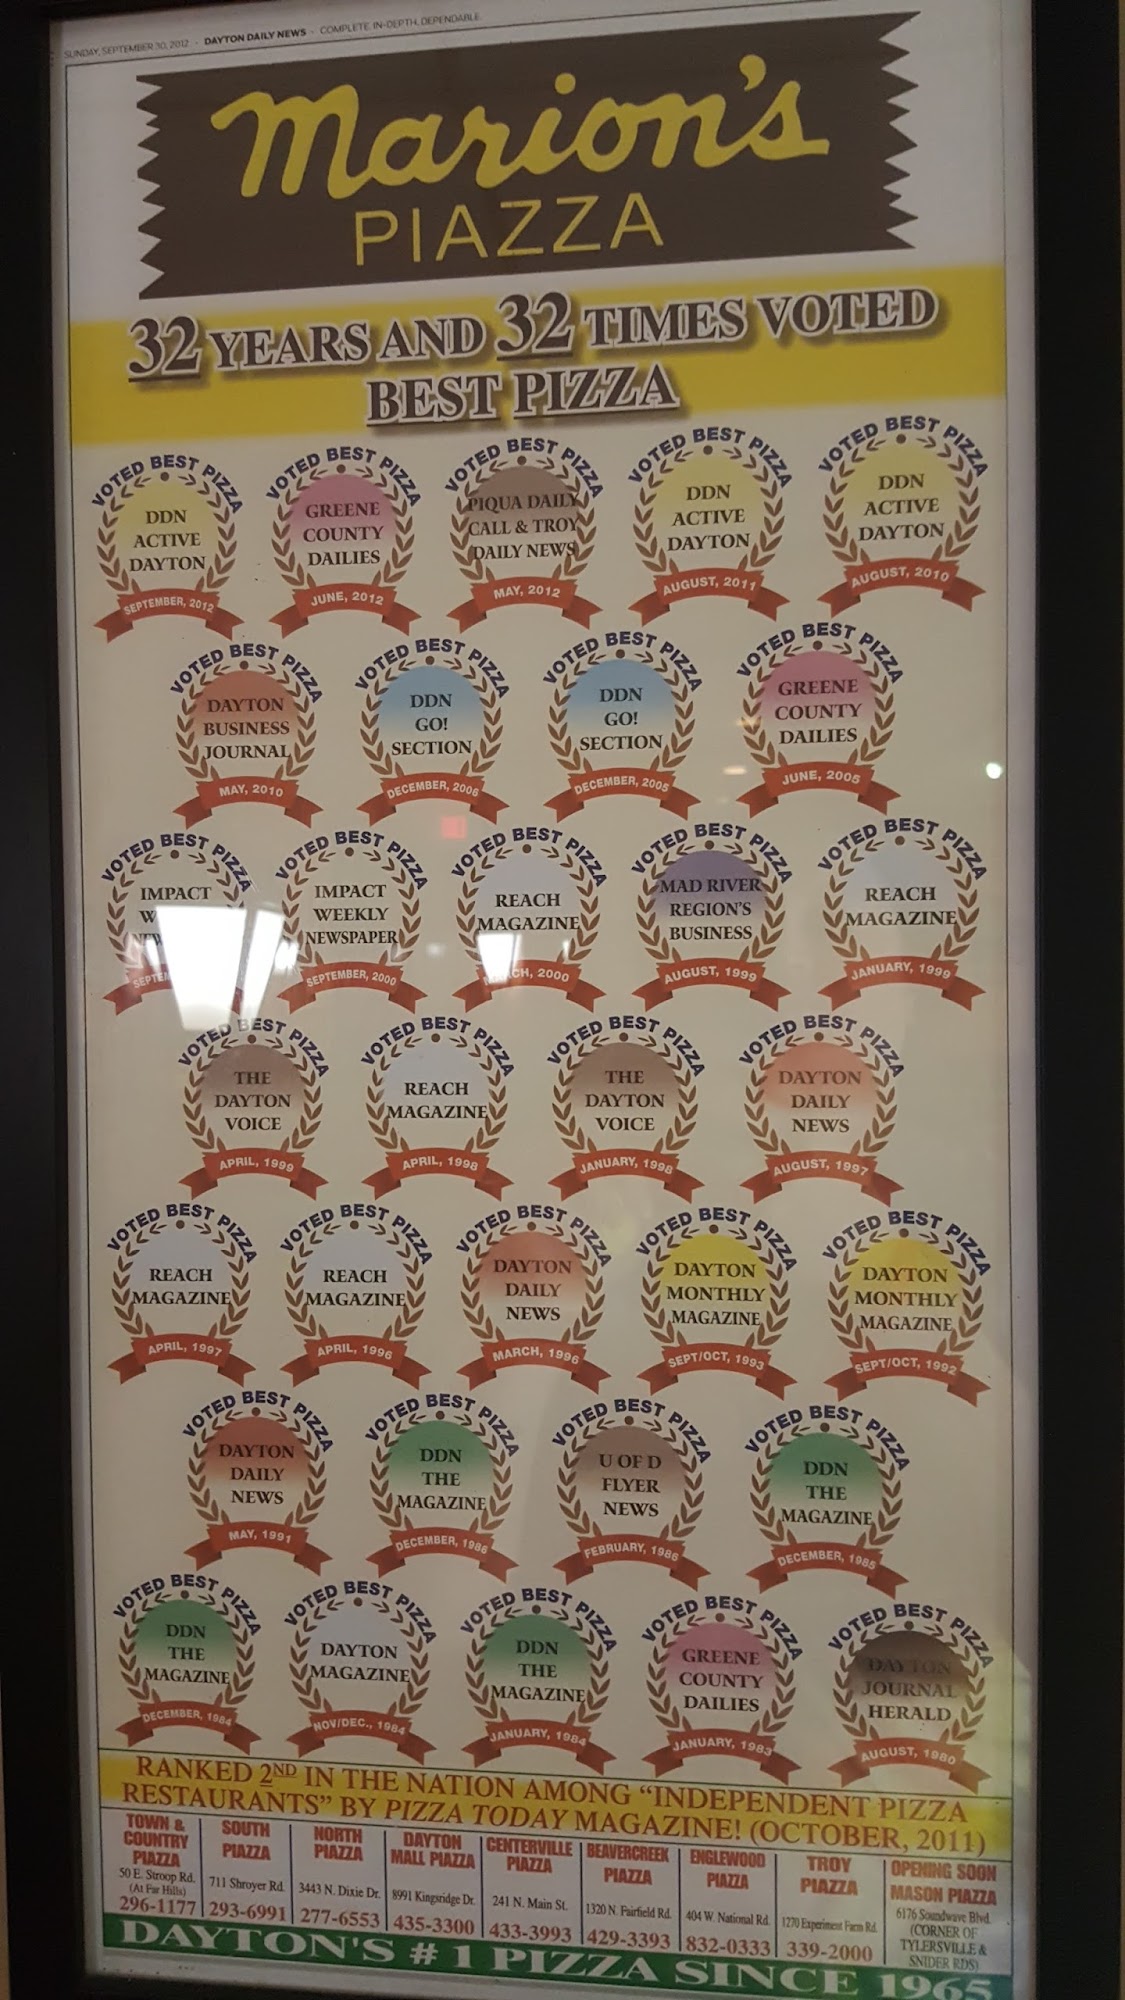 SUNDAY, SEPTEMBER 30, 2012 • DAYTON DAILY NEWS • COMPLETE. IN-DEPTH. DEPENDABLE.
Marion's
PIAZZA
32 YEARS AND 32 TIMES VOTED
BEST PIZZA
VOTED BEST PIZZA
DDN
ACTIVE
DAYTON
SEPTEMBER, 2012
VOTED BEST PIZZA
GREENE
COUNTY
DAILIES
JUNE, 2012
VOTED BEST PIZZA
PIQUA DAILY
CALL & TROY
DAILY NEWS
MAY, 2012
VOTED BEST PIZZA
DDN
ACTIVE
DAYTON
AUGUST, 2011
VOTED BEST PIZZA
DDN
ACTIVE
DAYTON
AUGUST, 2010
VOTED BEST PIZZA
DAYTON
BUSINESS
JOURNAL
MAY, 2010
VOTED BEST PIZZA
DDN
GO!
SECTION
DECEMBER, 2006
VOTED BEST PIZZA
DDN
GO!
SECTION
DECEMBER, 2005
VOTED BEST PIZZA
GREENE
COUNTY
DAILIES
JUNE, 2005
VOTED BEST PIZZA
IMPACT
VOTED BEST PIZZA
IMPACT
WEEKLY
NEWSPAPER
SEPTEMBER, 2000
VOTED BEST PIZZA
REACH
MAGAZINE
MARCH, 2000
VOTED BEST PIZZA
MAD RIVER
REGION'S
BUSINESS
AUGUST, 1999
VOTED BEST PIZZA
REACH
MAGAZINE
JANUARY, 1999
VOTED BEST PIZZA
THE
DAYTON
VOICE
APRIL, 1999
VOTED BEST PIZZA
REACH
MAGAZINE
APRIL, 1998
VOTED BEST PIZZA
THE
DAYTON
VOICE
JANUARY, 1998
VOTED BEST PIZZA
DAYTON
DAILY
NEWS
AUGUST, 1997
VOTED BEST PIZZA
REACH
MAGAZINE
APRIL, 1997
VOTED BEST PIZZA
REACH
MAGAZINE
APRIL, 1996
VOTED BEST PIZZA
DAYTON
DAILY
NEWS
MARCH, 1996
VOTED BEST PIZZA
DAYTON
MONTHLY
MAGAZINE
SEPT/OCT, 1993
VOTED BEST PIZZA
DAYTON
MONTHLY
MAGAZINE
SEPT/OCT, 1992
VOTED BEST PIZZA
DAYTON
DAILY
NEWS
MAY, 1991
VOTED BEST PIZZA
DDN
THE
MAGAZINE
DECEMBER, 1986
VOTED BEST PIZZA
U OF D
FLYER
NEWS
FEBRUARY, 1986
VOTED BEST PIZZA
DDN
THE
MAGAZINE
DECEMBER, 1985
VOTED BEST PIZZA
DDN
THE
MAGAZINE
DECEMBER, 1984
VOTED BEST PIZZA
DAYTON
MAGAZINE
NOV/DEC., 1984
VOTED BEST PIZZA
DDN
THE
MAGAZINE
JANUARY, 1984
VOTED BEST PIZZA
GREENE
COUNTY
DAILIES
JANUARY, 1983
VOTED BEST PIZZA
DAYTON
JOURNAL
HERALD
AUGUST, 1980
RANKED 2ND IN THE NATION AMONG "INDEPENDENT PIZZA
RESTAURANTS" BY PIZZA TODAY MAGAZINE! (OCTOBER, 2011)
TOWN &
COUNTRY
PIAZZA
50 E. Stroop Rd.
(At Far Hills)
296-1177
SOUTH
PIAZZA
711 Shroyer Rd.
293-6991
NORTH
PIAZZA
3443 N. Dixie Dr.
277-6553
DAYTON
MALL PIAZZA
8991 Kingsridge Dr.
435-3300
CENTERVILLE
PIAZZA
241 N. Main St.
433-3993
BEAVERCREEK
PIAZZA
1320 N. Fairfield Rd.
429-3393
ENGLEWOOD
PIAZZA
404 W. National Rd.
832-0333
TROY
PIAZZA
1270 Experiment Farm Rd.
339-2000
OPENING SOON
MASON PIAZZA
6176 Soundwave Blvd.
(CORNER OF
TYLERSVILLE &
SNIDER RDS)
DAYTON'S # 1 PIZZA SINCE 1965